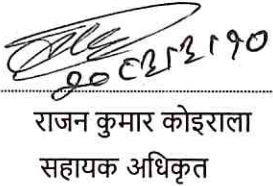 राजन कुमार कोइराला
सहायक अधिकृत